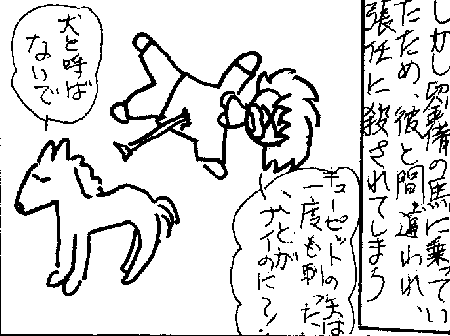 しかし劉備の馬に乗ってい
たため、彼と間違われ、
張任に殺されてしまう
キューピットの矢は
一度も刺さった
ことが
ナイのに？！
犬と呼ば
ないで